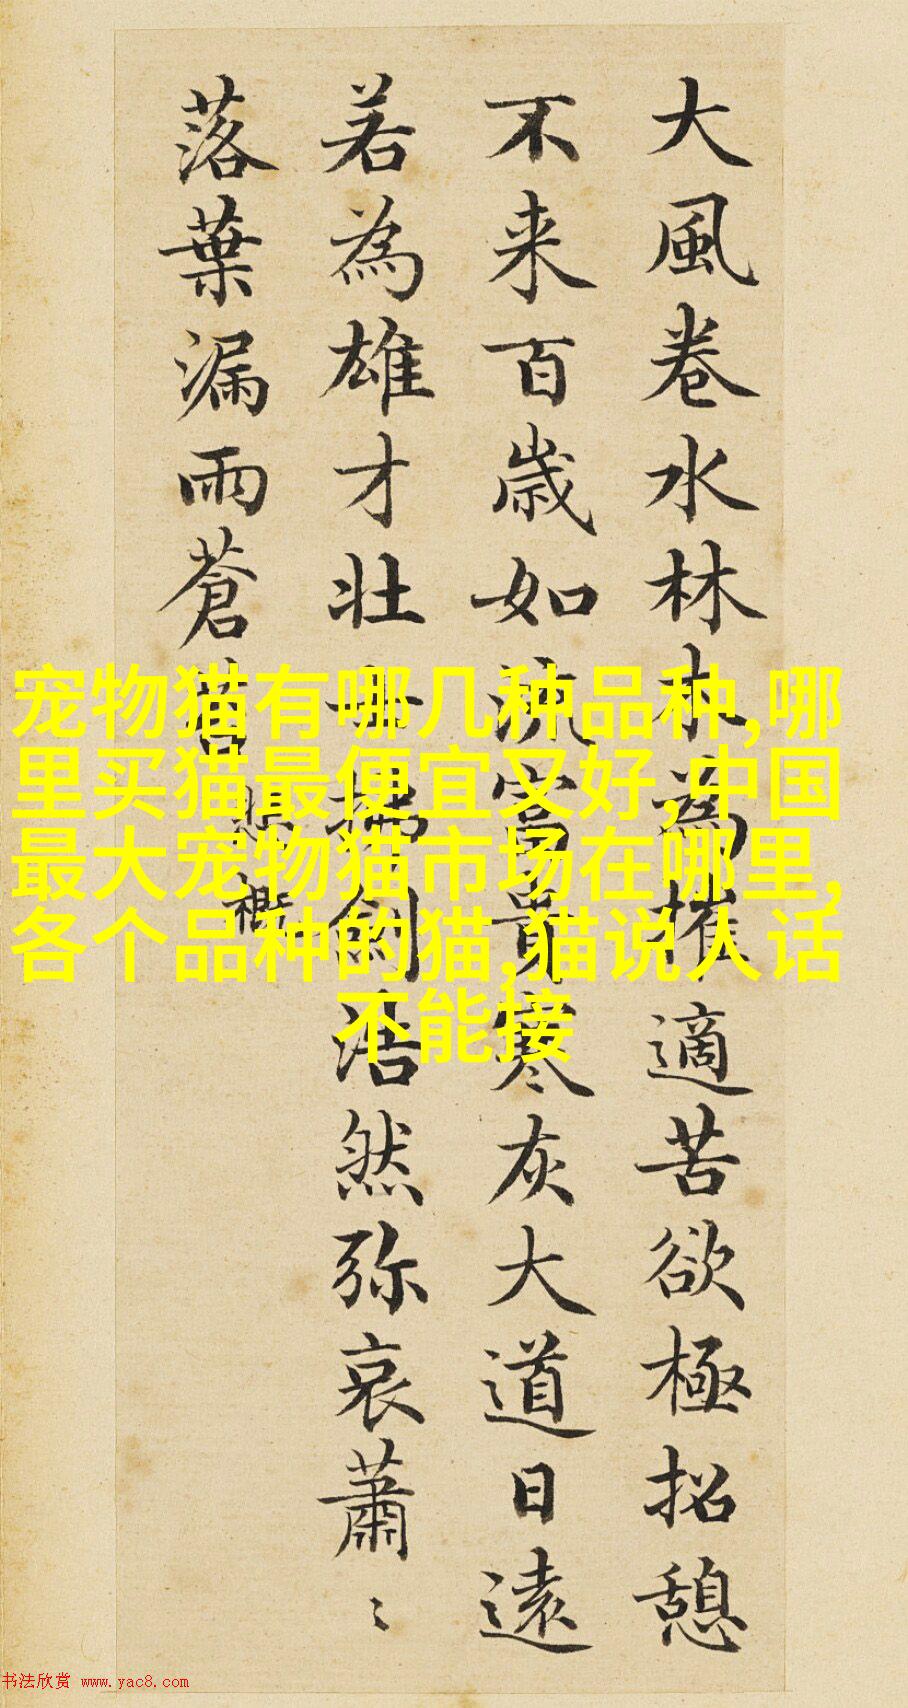 大風卷水林木為摧適苦欲極招憩
不来百歳如流富貴寒灰大道日遠
若為雄才壯士拂劍浩然弥哀蕭〻
落葉漏雨蒼苔
悲慨
宠物猫有哪几种品种,哪
里买猫最便宜又好,中国
最大宠物猫市场在哪里,
各个品种的猫,猫说人话
不能接
书法欣赏 www.yac8.com